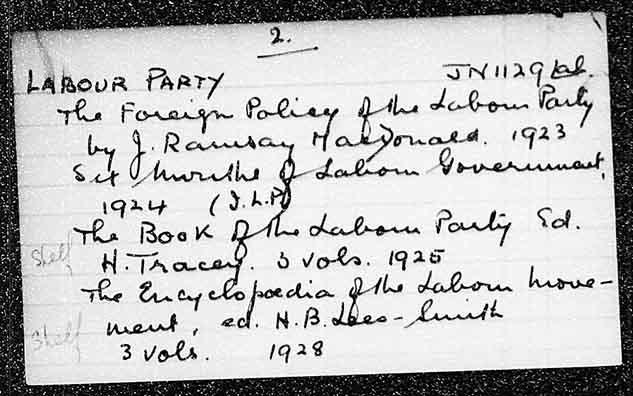 2.
LABOUR PARTY JN1129 Lab.
The Foreign Policy of the Labour Party
by J. Ramsay MacDonald. 1923
Six Months of Labour Government,
1924 (I.L.P)
Shelf The Book of the Labour Party Ed.
H. Tracey. 3 vols. 1925
The Encyclopœdia of the Labour Move-
Shelf ment, ed. H.B. Lees-Smith
3 vols. 1928